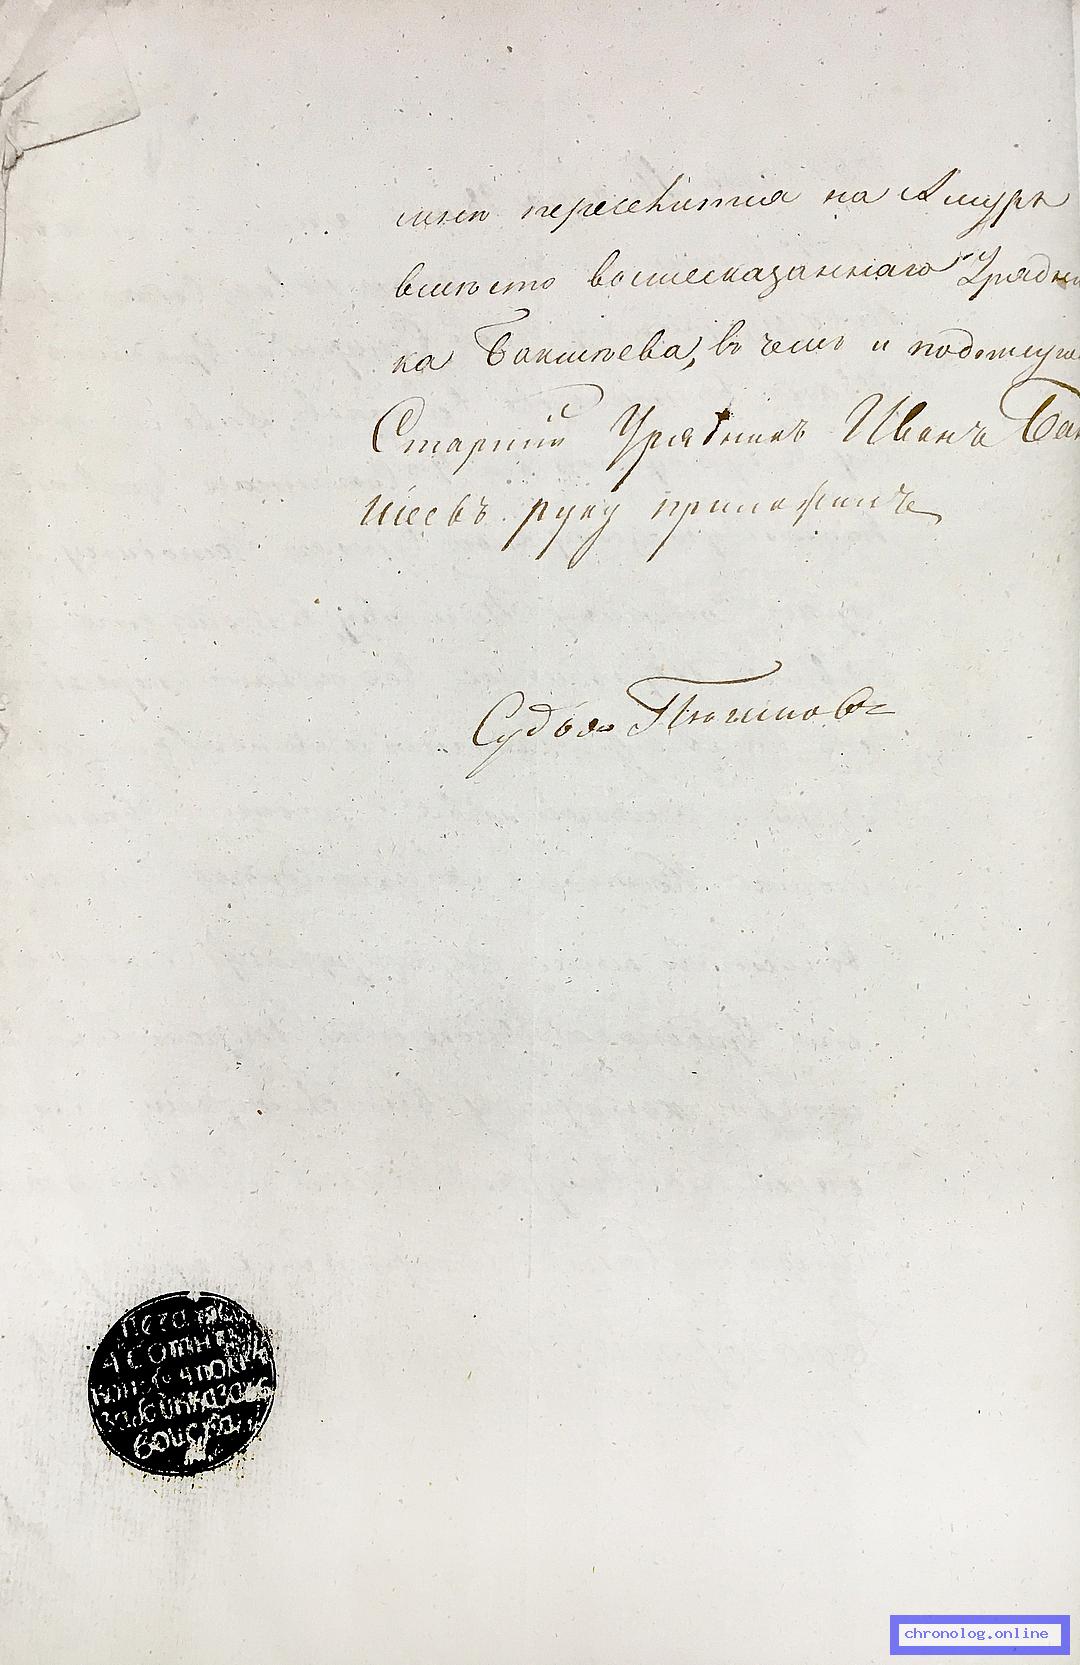 переселится на Амуръ
вместо вышесказаннаго Уряdни
ка Бакшеева, въ чемъ и подпису
Старшій Урядникъ Иванъ Бак
шеевъ руку приложилъ
Судья Плотниковъ
Печать
4 сотни
4 полка
Забайк казач
войска
chronolog.online